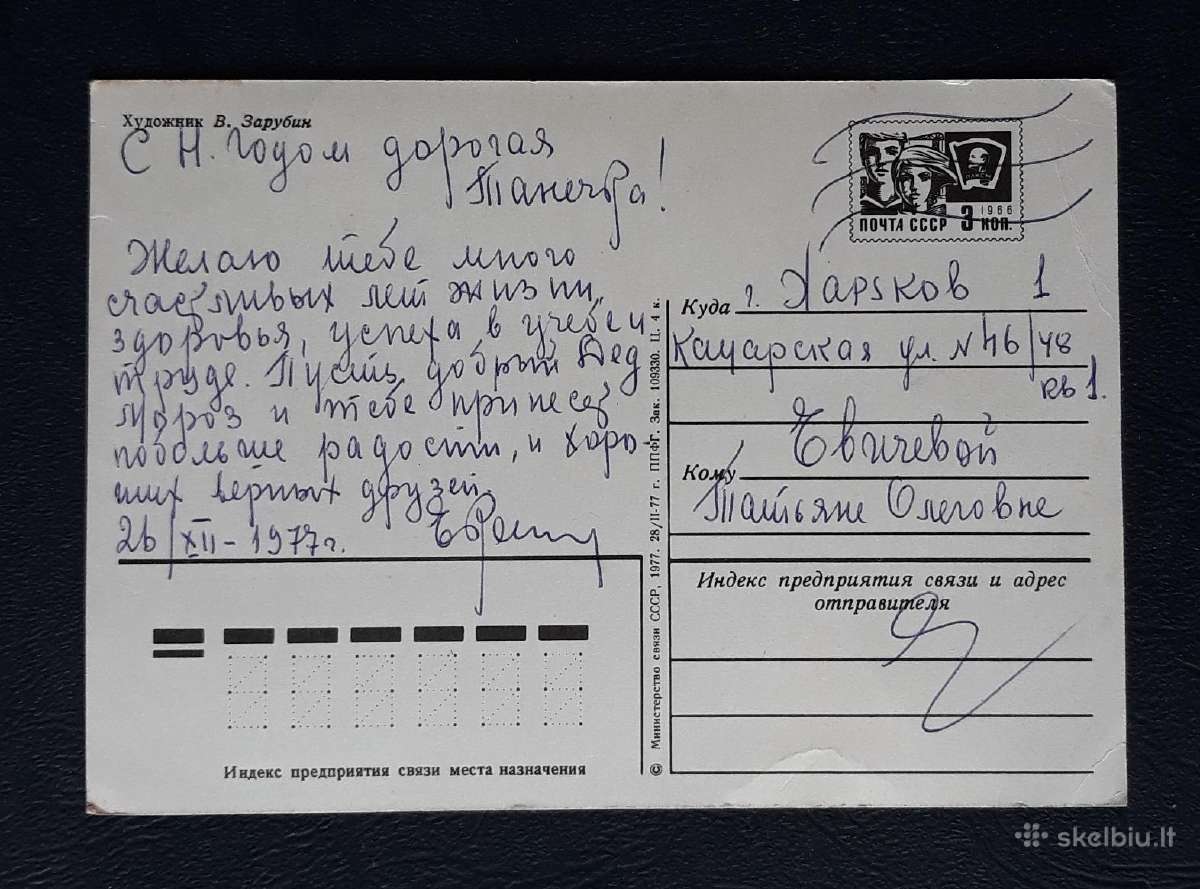 Художник В. Зарубин
С Н. Годом дорогая
Танечка!
Желаю тебе много
счастливых лет жизни,
здоровья, успеха в учебе и
труде. Пусть добрый Дед
Мороз и тебе принесет
побольше радости, и хоро-
ших верных друзей.
26/XII-1977г.
ВЛКСМ
1966
ПОЧТА СССР 3 КОП.
Куда г. Харьков 1
Кацарская ул. N 46/48
кв 1.
Евичевой
Кому
Татьяне Олеговне
Индекс предприятия связи и адрес
отправителя
Индекс предприятия связи места назначения
© Министерство связи СССР, 1977. 28/II-77 г. ППФГ. Зак. 109330. Ц. 4 к.
skelbiu.lt